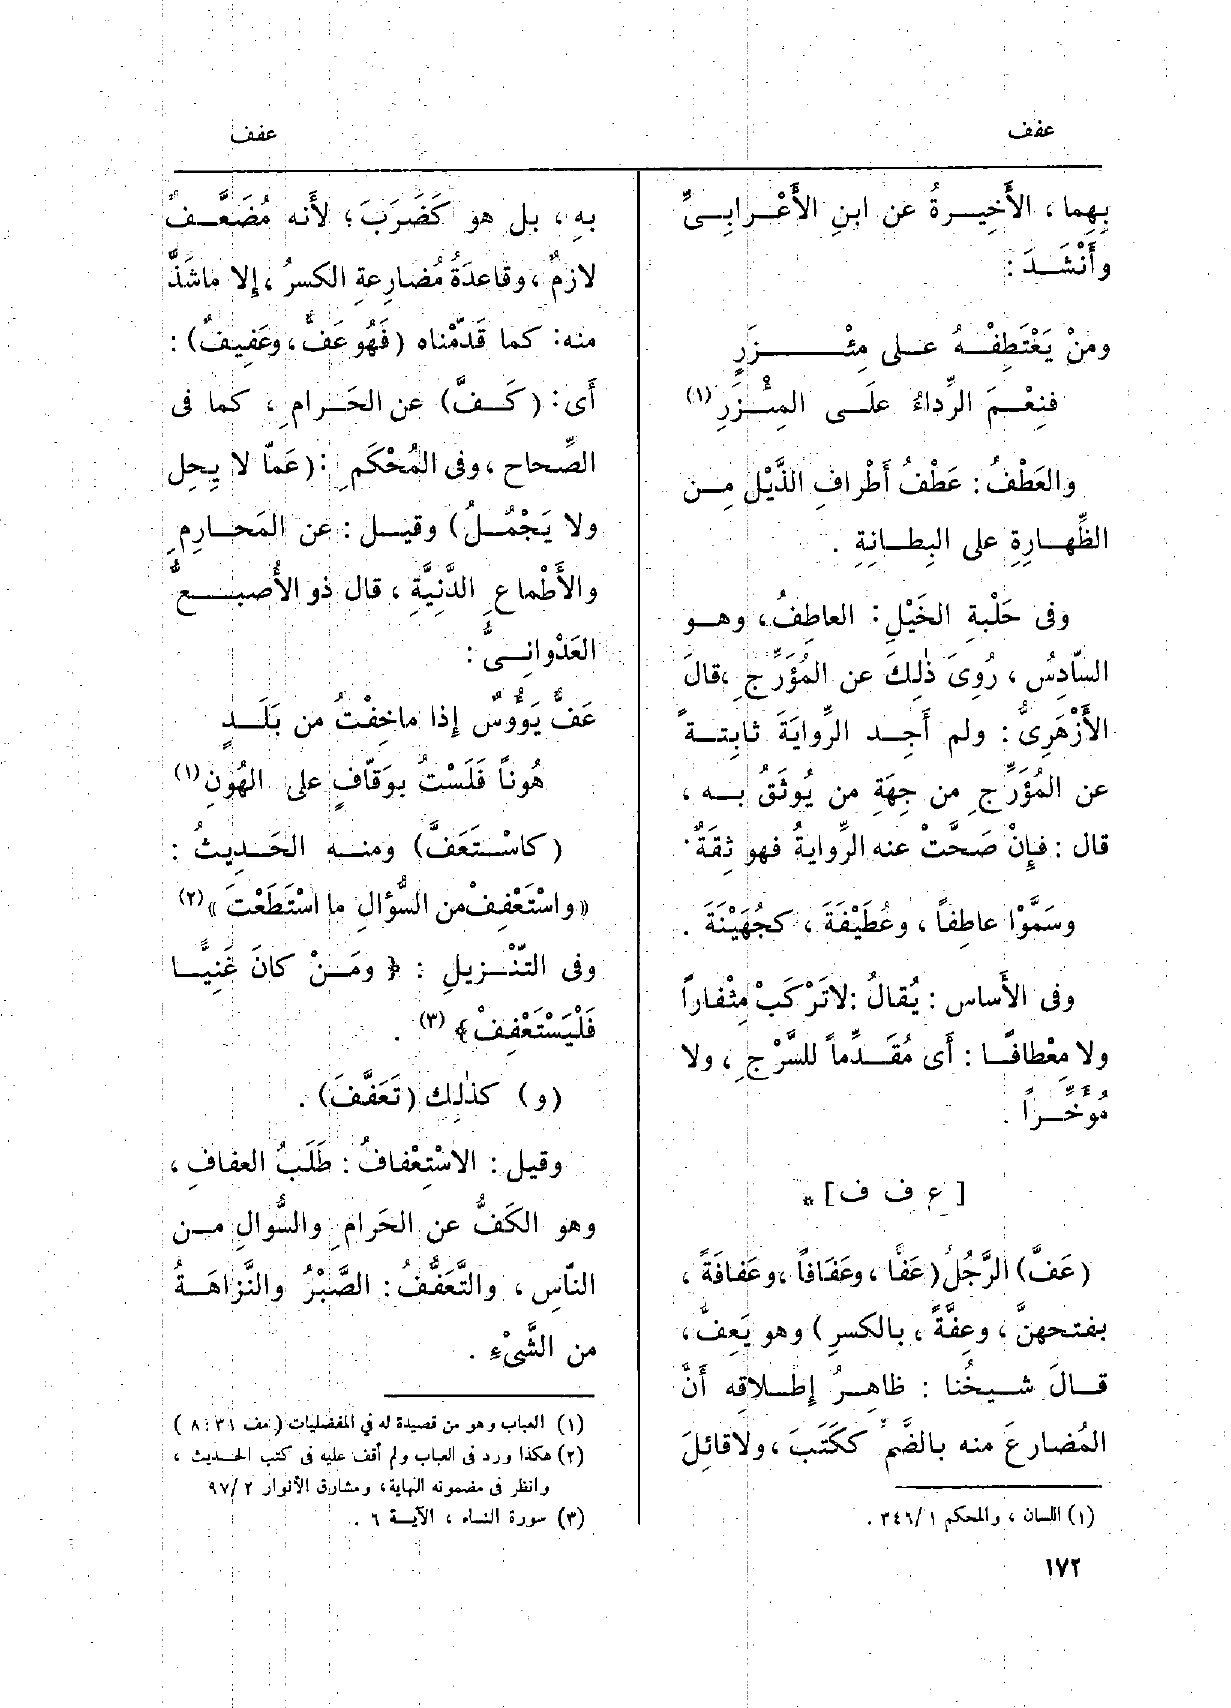 عفف
عفف
بِهِما ، الأَخِيرةُ عن ابنِ الأَعْرابِىِّ
وأَنْشَدَ :
ومنْ يَعْتَطِفْهُ على مِئْزَرٍ
فنِعْمَ الرِّداءُ علَى المِئْزَرِ (١)
والعَطْفُ : عَطْفُ أَطْرافِ الذَّيْلِ من
الظِّهارةِ على البِطانةِ .
وفى حَلْبةِ الخَيْلِ : العاطِفُ ، وهو
السّادِسُ ، رُوِىَ ذٰلِكَ عن المُؤَرِّجِ ، قالَ
الأَزْهَرِىُّ : ولم أَجِد الرِّوايَةَ ثابِتةً
عن المُؤَرِّجِ من جِهَةِ من يُوثَقُ به ،
قال : فإِنْ صَحَّتْ عنه الرِّوايةُ فهو ثِقَةٌ .
وسَمَّوْا عاطِفاً ، وعُطَيْفَةَ ، كجُهَيْنَةَ .
وفى الأَساس : يُقالُ : لاتَرْكَبْ مِثْفاراً
ولا مِعْطافًا : أَى مُقَدِّماً للسَّرْجِ ، ولا
مُؤَخِّراً .
[ ع ف ف ] *
(عَفَّ) الرَّجُلُ (عَفًّا ، وعَفَافاً ، وعَفافَةً ،
بفتحهنَّ ، وعِفَّةً ، بالكسرِ) وهو يَعِفُّ ،
قالَ شيخُنا : ظاهِرُ إِطلاقِه أَنَّ
المُضارعَ منه بالضَّمِّ ككَتَبَ ، ولاقائِلَ
(١) اللسان ، والمحكم ٣٤٦/١ .
١٧٢
بهِ ، بل هو كَضَرَبَ ؛ لأَنه مُضَعَّفٌ
لازمٌ ، وقاعدَةُ مُضارِعةِ الكسرُ ، إلا ماشَذَّ
منه : كما قَدَّمْناه (فَهُو عَفٌّ ، وعَفِيفٌ) :
أَى : (كَفَّ) عن الحَرامِ ، كما فى
الصِّحاح ، وفى المُحْكَمِ : (عَمّا لا يحِل
ولا يَجْمُلُ) وقيل : عن المَحارِمِ
والأَطْماعِ الدَّنِيَّةِ ، قال ذو الأُصبعِ
العَدْوانىُّ :
عَفٌّ يَؤُوسٌ إذا ماخِفْتُ من بَلَدٍ
هُوناً فَلَسْتُ بوَقّافٍ على الهُونِ (١)
(كاسْتَعَفَّ) ومنه الحَديثُ :
«واسْتَعْفِفْ من السُّؤالِ ما اسْتَطَعْتَ » (٢)
وفى التَّنْزيلِ : ﴿ ومَنْ كانَ غَنِيًّا
فَلْيَسْتَعْفِفْ ﴾ (٣) .
(و) كذٰلِك (تَعَفَّفَ) .
وقيل : الاسْتِعْفافُ : طَلَبُ العفافِ ،
وهو الكَفُّ عن الحَرامِ والسُّؤالِ من
النّاسِ ، والتَّعَفُّفُ : الصَّبْرُ والنَّزاهَةُ
من الشَّىْءِ .
(١) العباب وهو من قصيدة له في المفضليات (مف ٣١ : ٨)
(٢) هكذا ورد فى العباب ولم أقف عليه فى كتب الحديث ،
وانظر فى مضمونه النهاية، ومشارق الأنوار ٩٧/٢
(٣) سورة النساء ، الآية ٦ .